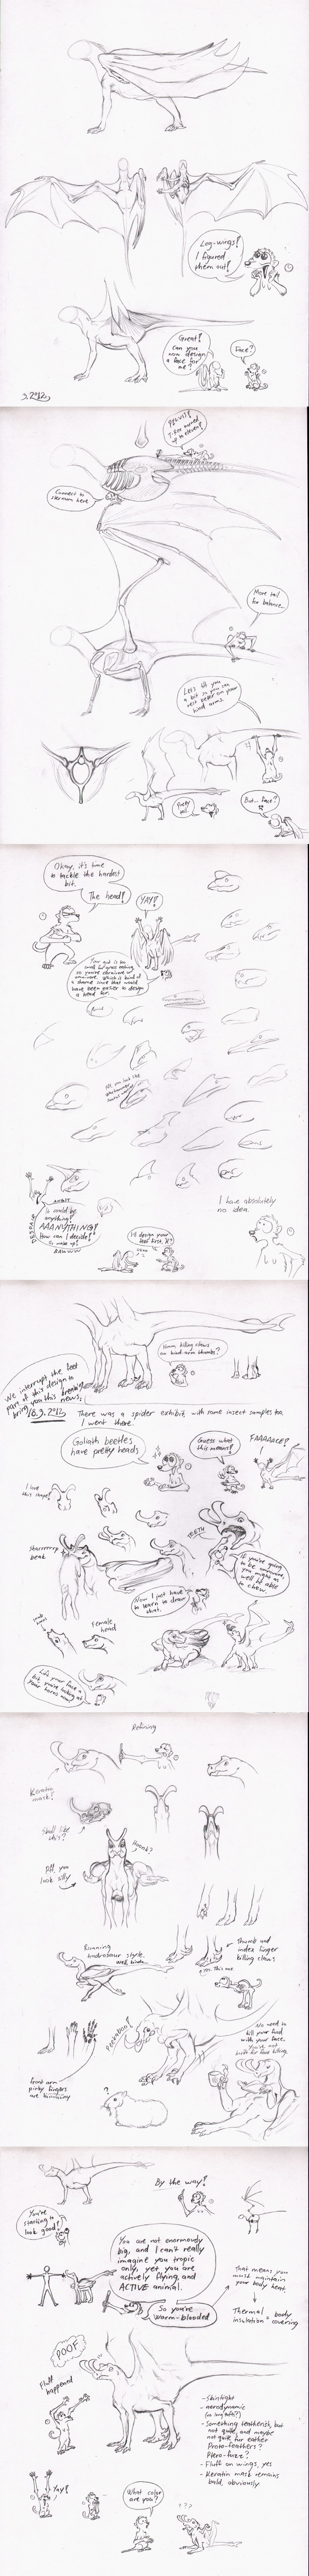 Leg-wings!
I figured
them out!
Great!
Can you
now design
a face for
me?
Face?
9.2012
Pelvis!
Connect to
sternum here
More tail
for balance...
Let's tilt you
a bit so you can
rest better on your
hind arms.
Pretty
tail.
But... face?
Okay, it's time
to tackle the hardest
bit.
The head!
YAY!
Your gut is too
small for grass eating,
so you're carnivore or
omnivore. Which is kind of
a shame since that would
have been easier to design
a head for.
It could be
anything!
AAANYTHING!
How can I decide!
I have absolutely
no idea.
I'll design your
feet first, ok?
Hmm, killing claws
on hind-arm thumbs?
We interrupt the feet
part of this design to
bring you this breaking
news;
16.9.2012
There was a spider exhibit, with some insect samples too.
I went there.
Goliath beetles
have pretty heads
Guess what
this means!
FAAAACE?
I love
this shape!
Sharrrrrp
beak
TEETH
If you're going
to be omnivore,
you might as
well be able
to chew.
Now I just have
to learn to draw
that.
Female
head
Lift your face a
bit, you're looking at
your horns now!
Refining
Keratin
mask!
Skull like
this?
Hnnnh?
Aff, you
look silly
Running
hadrosaur style.
Well, kinda.
Thumb and
index finger
killing claws
Yes. This one.
front arm
pinky fingers
are tiiiiiiny
No need to
kill your food
with your face.
You're not
built for face killing.
?
You're
starting to
look good!
By the way!
You are not enormously
big, and I can't really
imagine you tropic
only, yet you are
actively flying, and
ACTIVE animal.
So you're
warm-blooded
That means you
must maintain
your body heat.
Thermal = body
insulation covering
POOF
Fluff
happened
- Skintight
- aerodynamic
(no long tufts?)
- Something featherish, but
not quite, and maybe
not quite fur either
Proto-feathers?
Ptero-fuzz?
- Fluff on wings, yes
- Keratin mask remains
bald, obviously
Yay!
What color
are you?
???